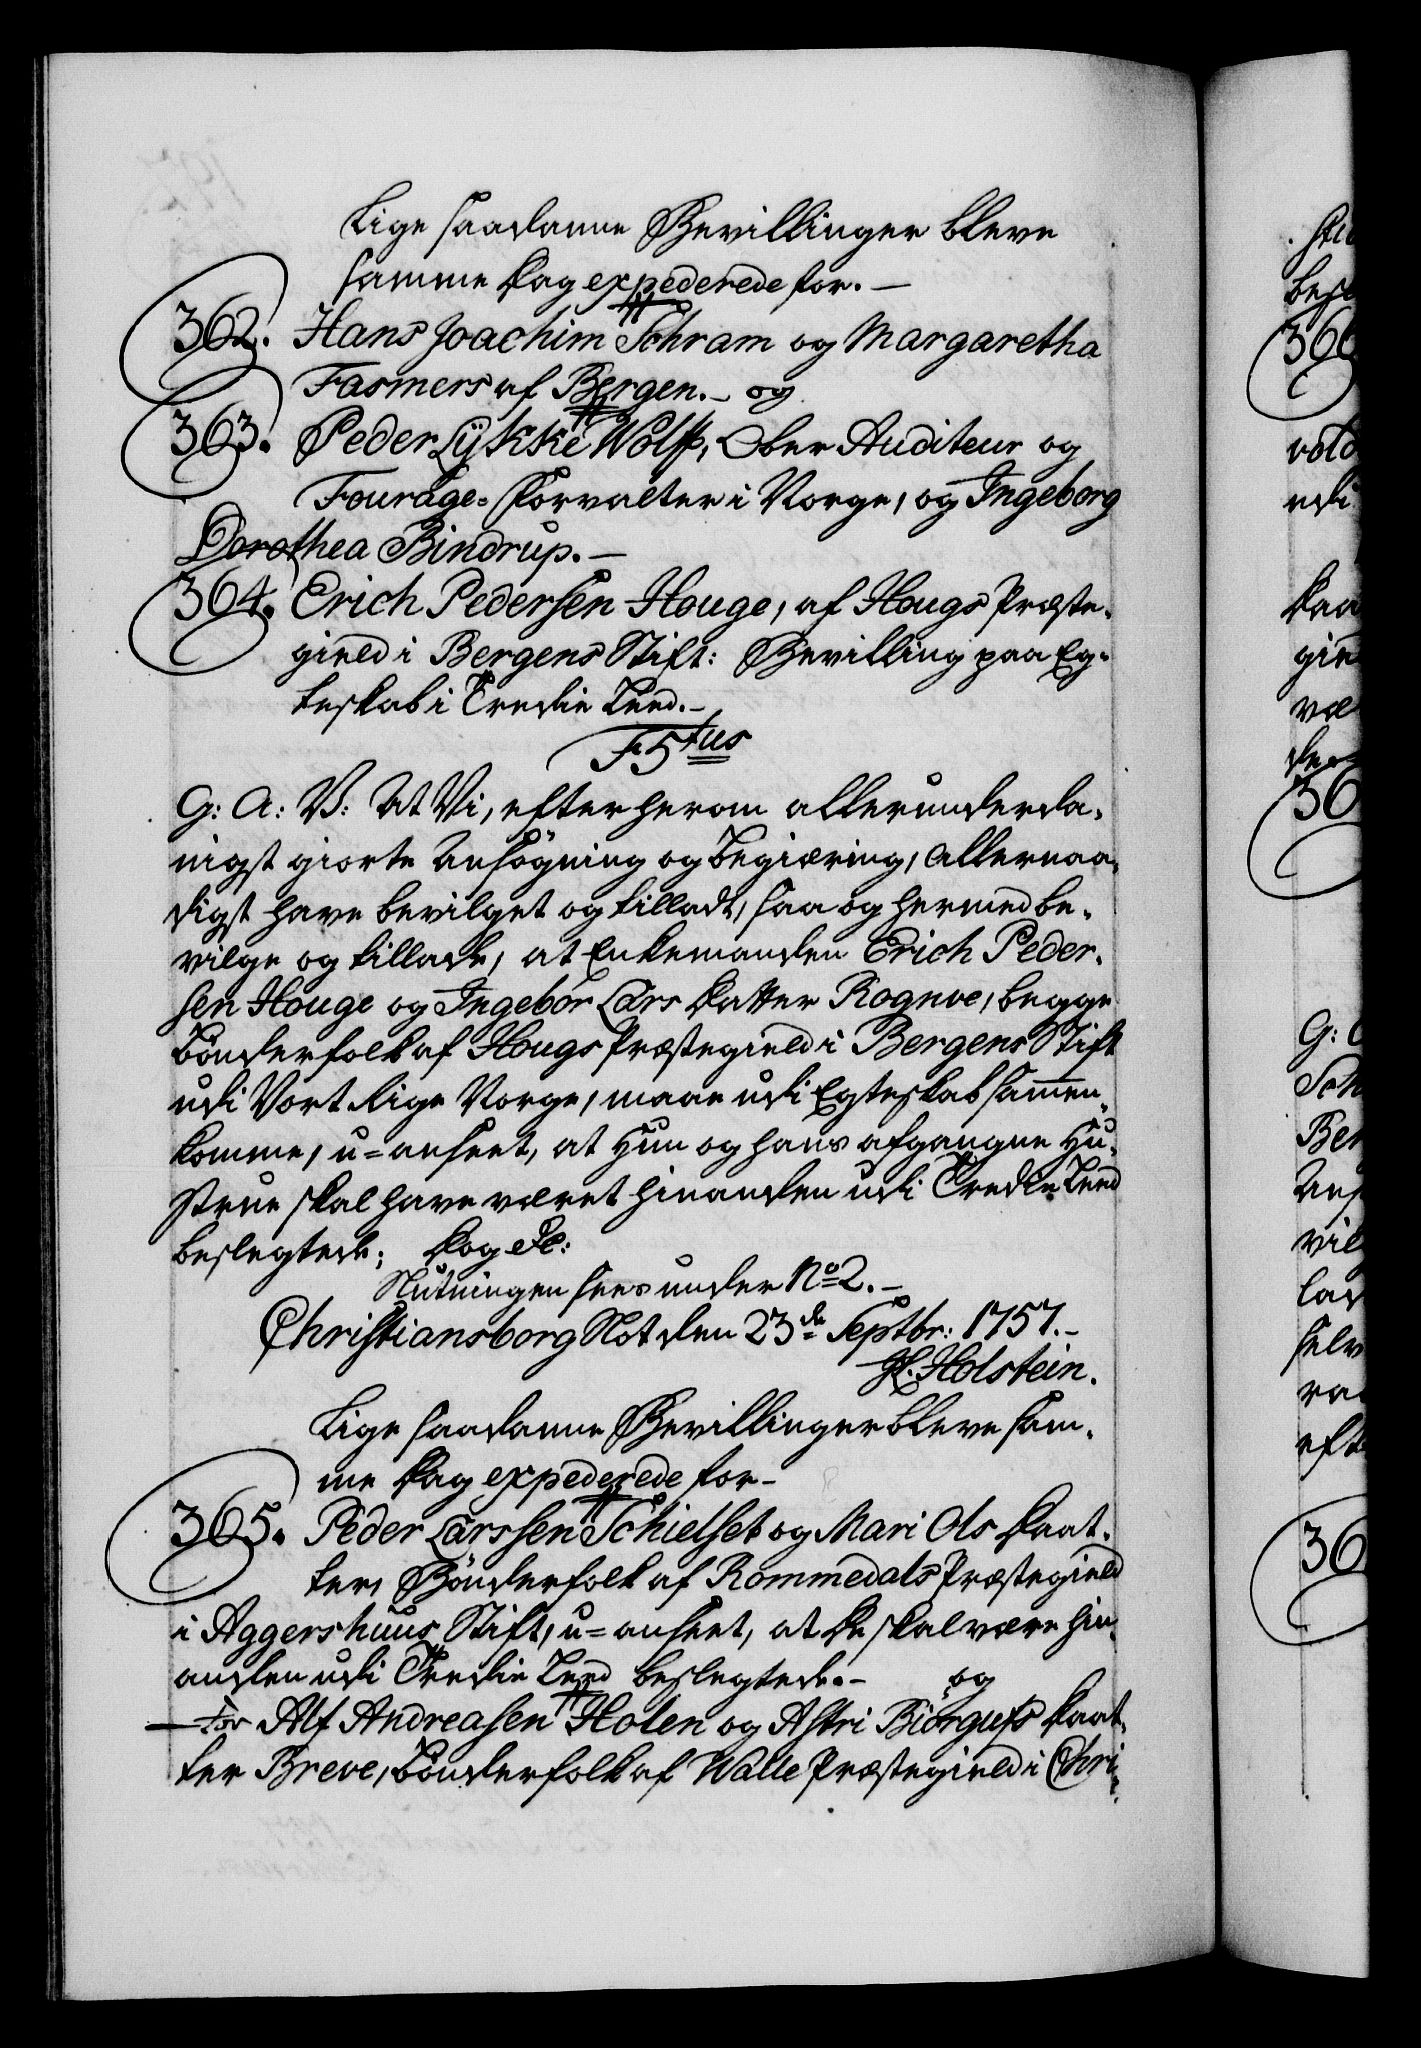 Lige saadanne Bevillinger bleve
samme Dag expederede for. —
362. Hans Joachim Schram og Margaretha
Fasmers af Bergen. – og
363. Peder Lykke Wolff, Ober Auditeur og
Fourage- Forvalter i Norge, og Ingeborg
Dorothea Bindrup. —
364. Erich Pedersen Houge, af Hougs Præste-
gield i Bergens Stift: Bevilling paa Eg-
teskab i Tredie Leed. –
F 5tus
G: A: V: At Vi, efter herom allerunderda-
nigst giorte Ansøgning og Begiæring, allernaa-
digst have bevilget og tilladt, saa og hermed be-
vilge og tillade, at Enkemanden Erich Peder-
sen Houge og Ingebor Lars Datter Rogneve, begge
Bønderfolk af Hougs Præstegield i Bergens Stift
udi Vort Rige Norge, maae udi Egteskab sammen-
komme, u-anseet, at Hun og hans afgangne Hu-
strue skal have været hinanden udi Tredie Leed
beslegtede; Dog etc:
Slutningen sees under No 2. –
Christiansborg Slot den 23de Septbr: 1757. –
H. Holstein.
Lige saadanne Bevillinger bleve sam-
me Dag expederede for –
365. Peder Larssen Schielset og Mari Ols Daat-
ter, Bønderfolk af Rommedals Præstegield
i Aggershuus Stift, u-anseet, at de skal være hin-
anden udi Tredie Leed beslegtede. – og
— for Alf Andreasen Holen og Astri Biørgufs Daat-
ter Breve, Bønderfolk af Walle Præstegield i Chri-